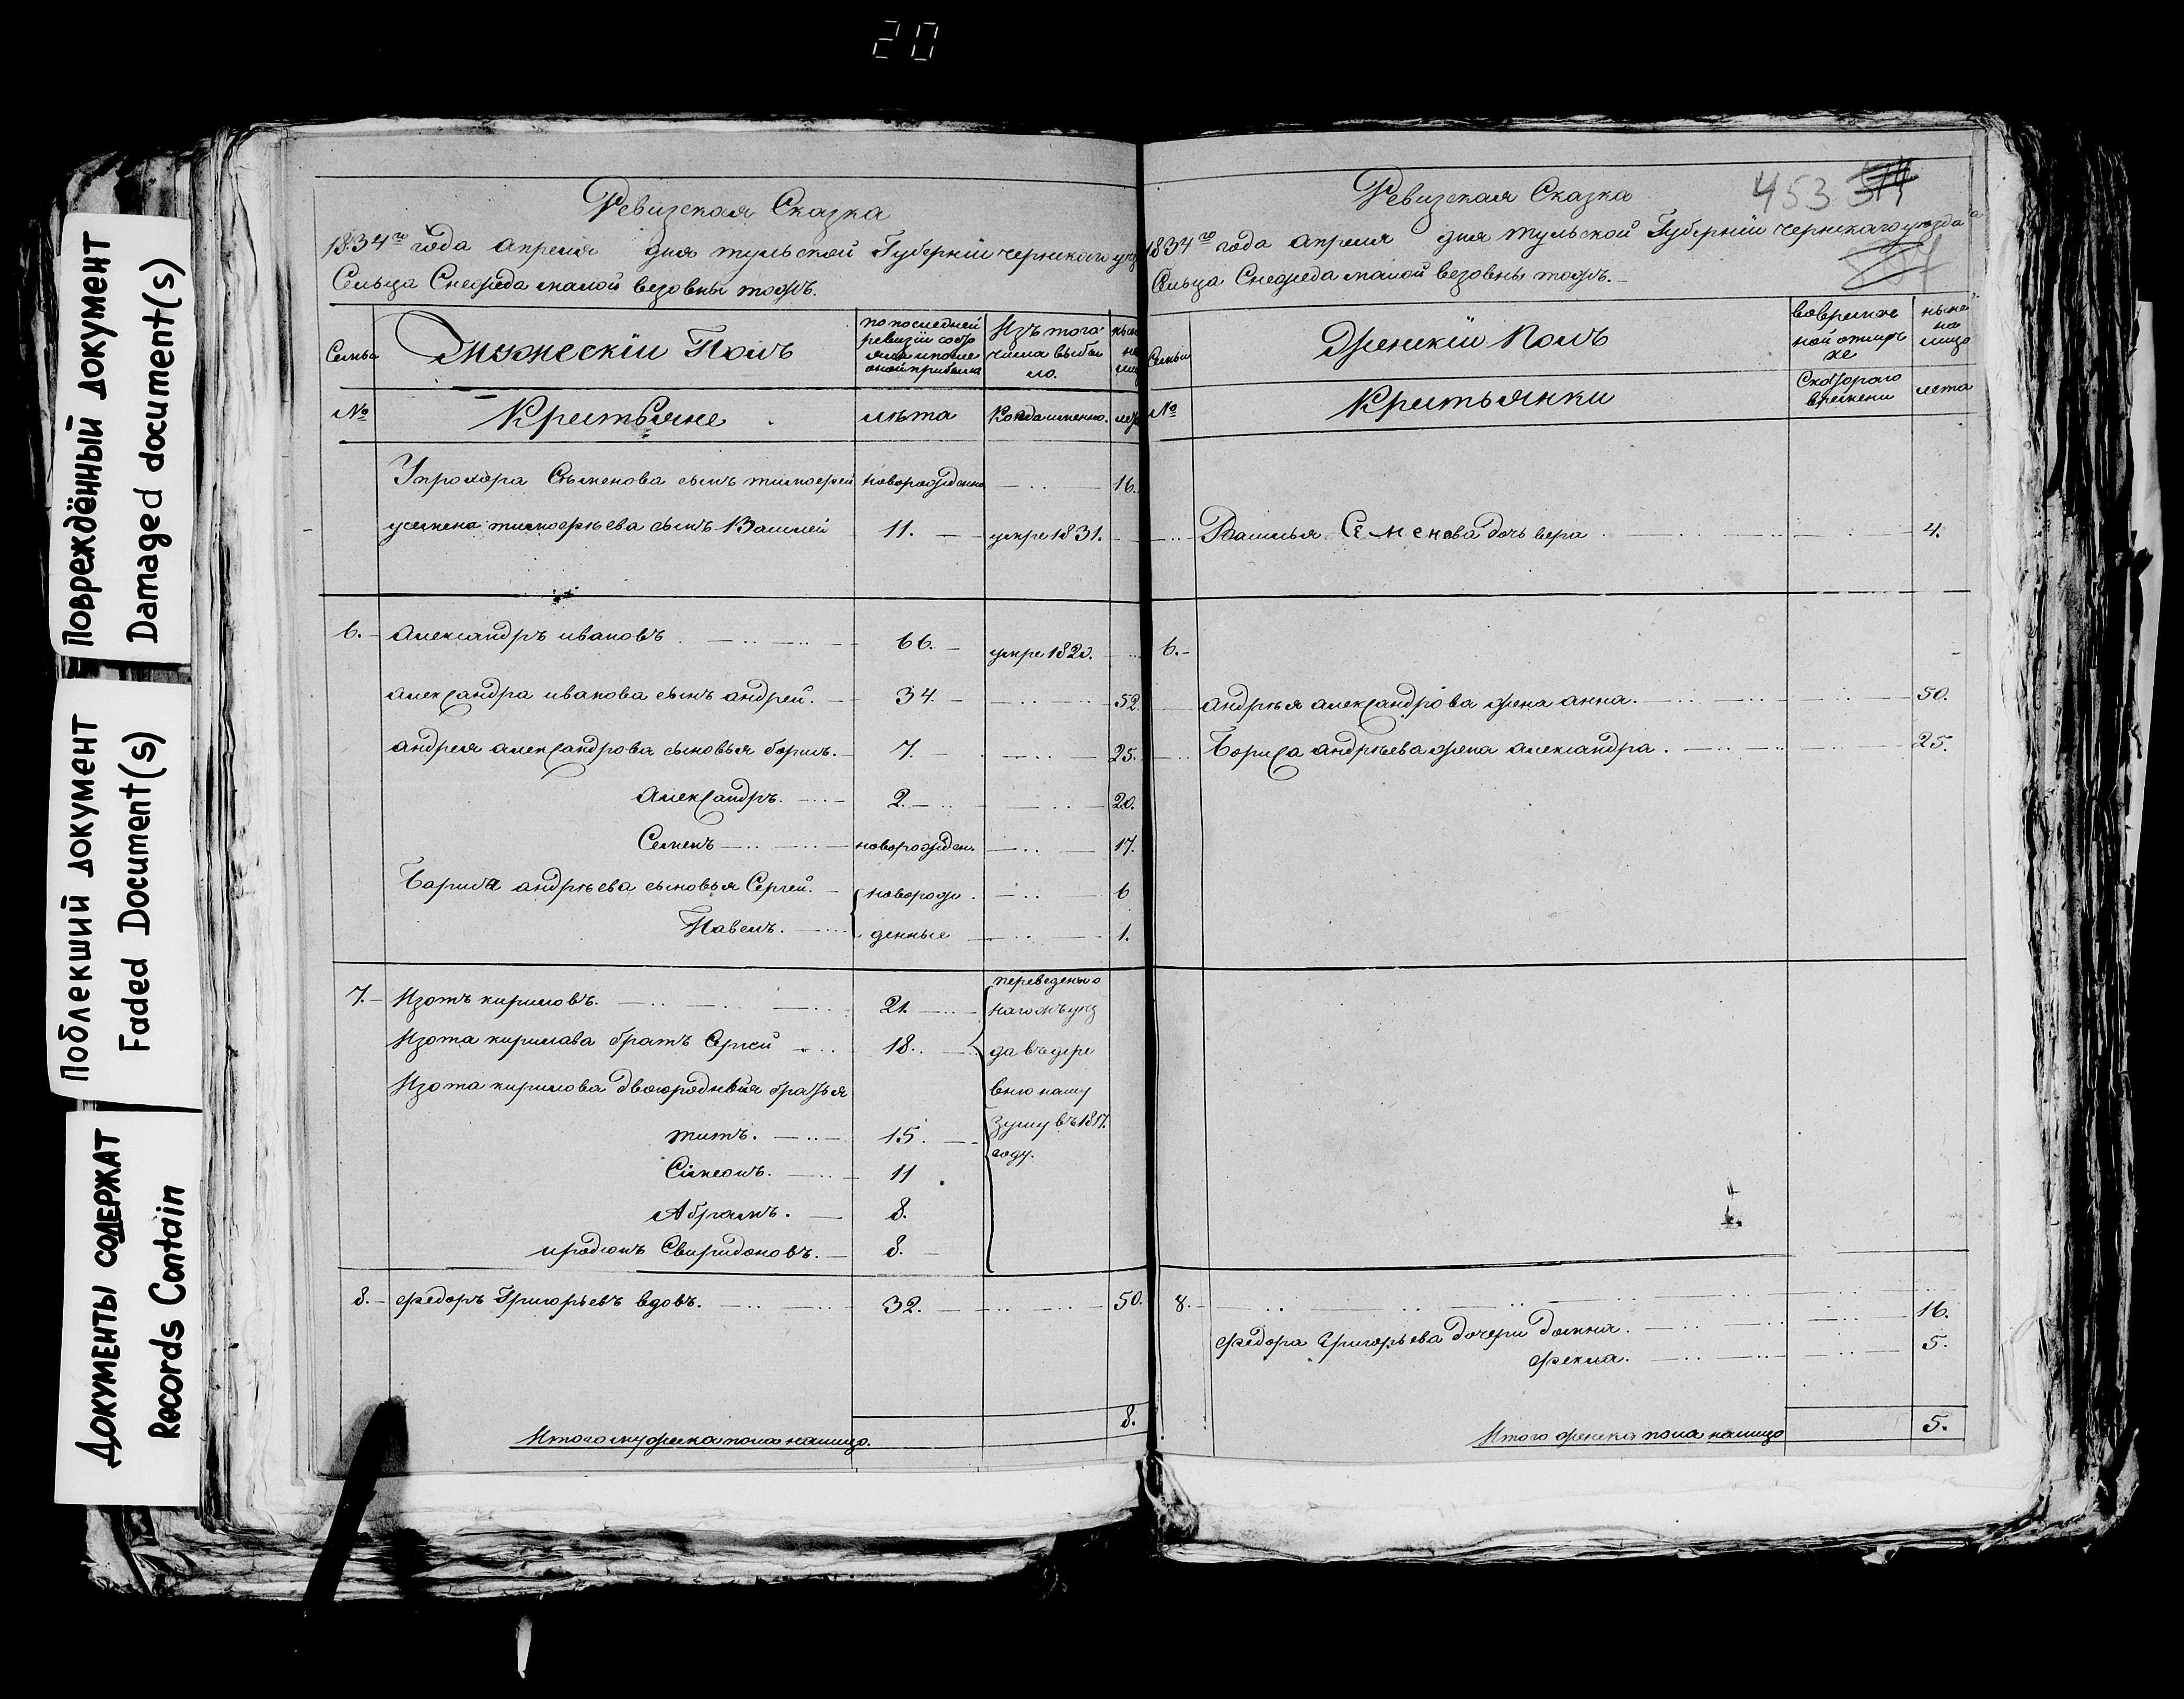 20
Повреждённый документ
Damaged document(s)
Поблекший документ
Faded Document(s)
Документы содержат
Records Contain
Ревизская Сказка
1834го года апреля дня тульской Губернiи чернскаго
Сельца Снежеда малой везовны тожъ.
Семьи
Мужескiй Полъ
по последней
ревизiи состо
яло и после
оной прибыло
Изъ того
числа выбы
ло.
№
Крестьяне
лѣта
Когда именно.
У прохора Семенова сынъ тимофей новорожденно 16.
у семена тимофеева сынъ Василей 11. умре 1831.
6. александръ ивановъ 66. умре 1820.
александра иванова сынъ андрей. 34. 52.
андрея александрова сыновья борисъ. 7. 25.
Александръ. 2. 20.
Семенъ новорожден. 17.
Бориса андрѣева сыновья Сергей. новорож 6
Павелъ. денные 1.
переведены о
7. Изотъ кириловъ. 21. нагожъ уез
Изота кирилова братъ Сергей 18. да въ дере
Изота кирилова двоюродныя братья вню
титъ. 15. зушу въ 1817.
году.
Симеонъ. 11
Абрамъ. 8.
иродионъ Свиридоновъ. 8.
8. федоръ Григорьевъ вдовъ. 32. 50.
8.
Итого мужеска пола налицо.
453
Ревизская Сказка
1834го года апреля дня тульской Губернiи чернскаго уезда
Сельца Снежеда малой везовны тожъ.
Семьи
Женскiй Полъ
вовремен
ной отлуч
ке
ныне
на
лицо
№
Крестьянки
Скотораго
времени
лета
Василья Семенова дочь вера 4.
6.
андрѣя александрова жена анна. 50.
Бориса андрѣева жена александра. 25.
8.
федора Григорьева дочери домна. 16.
фекла. 5.
Итого женска пола налицо 5.